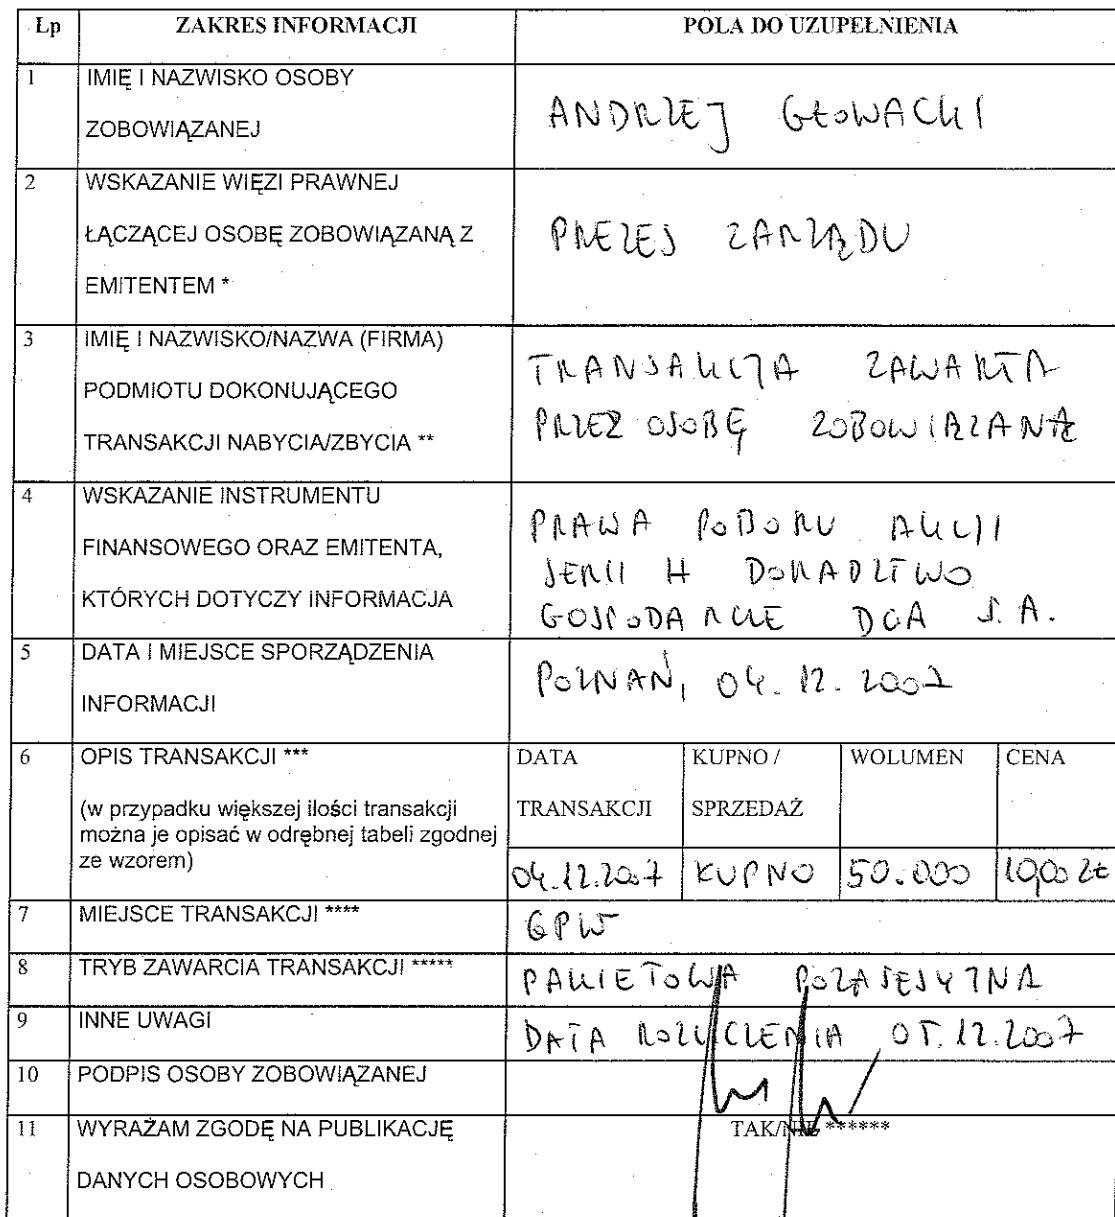 Lp ZAKRES INFORMACJI POLA DO UZUPEŁNIENIA
1 IMIĘ I NAZWISKO OSOBY
ZOBOWIĄZANEJ
ANDRZEJ GŁOWACKI
2 WSKAZANIE WIĘZI PRAWNEJ
ŁĄCZĄCEJ OSOBĘ ZOBOWIĄZANĄ Z
EMITENTEM *
PREZES ZARZĄDU
3 IMIĘ I NAZWISKO/NAZWA (FIRMA)
PODMIOTU DOKONUJĄCEGO
TRANSAKCJI NABYCIA/ZBYCIA **
TRANSAKCJA ZAWARTA
PRZEZ OSOBĘ ZOBOWIĄZANĄ
4 WSKAZANIE INSTRUMENTU
FINANSOWEGO ORAZ EMITENTA,
KTÓRYCH DOTYCZY INFORMACJA
PRAWA POBORU AKCJI
SERII H DORADZTWO
GOSPODARCZE DGA S.A.
5 DATA I MIEJSCE SPORZĄDZENIA
INFORMACJI
POZNAŃ, 04.12.2007
6 OPIS TRANSAKCJI ***
(w przypadku większej ilości transakcji
można je opisać w odrębnej tabeli zgodnej
ze wzorem)
DATA KUPNO / WOLUMEN CENA
TRANSAKCJI SPRZEDAŻ
04.12.2007 KUPNO 50.000 10,00 ZŁ
7 MIEJSCE TRANSAKCJI ****
GPW
8 TRYB ZAWARCIA TRANSAKCJI *****
PAKIETOWA POZASESYJNA
9 INNE UWAGI
DATA ROZLICZENIA 05.12.2007
10 PODPIS OSOBY ZOBOWIĄZANEJ
11 WYRAŻAM ZGODĘ NA PUBLIKACJĘ
DANYCH OSOBOWYCH
TAK/NIE ******